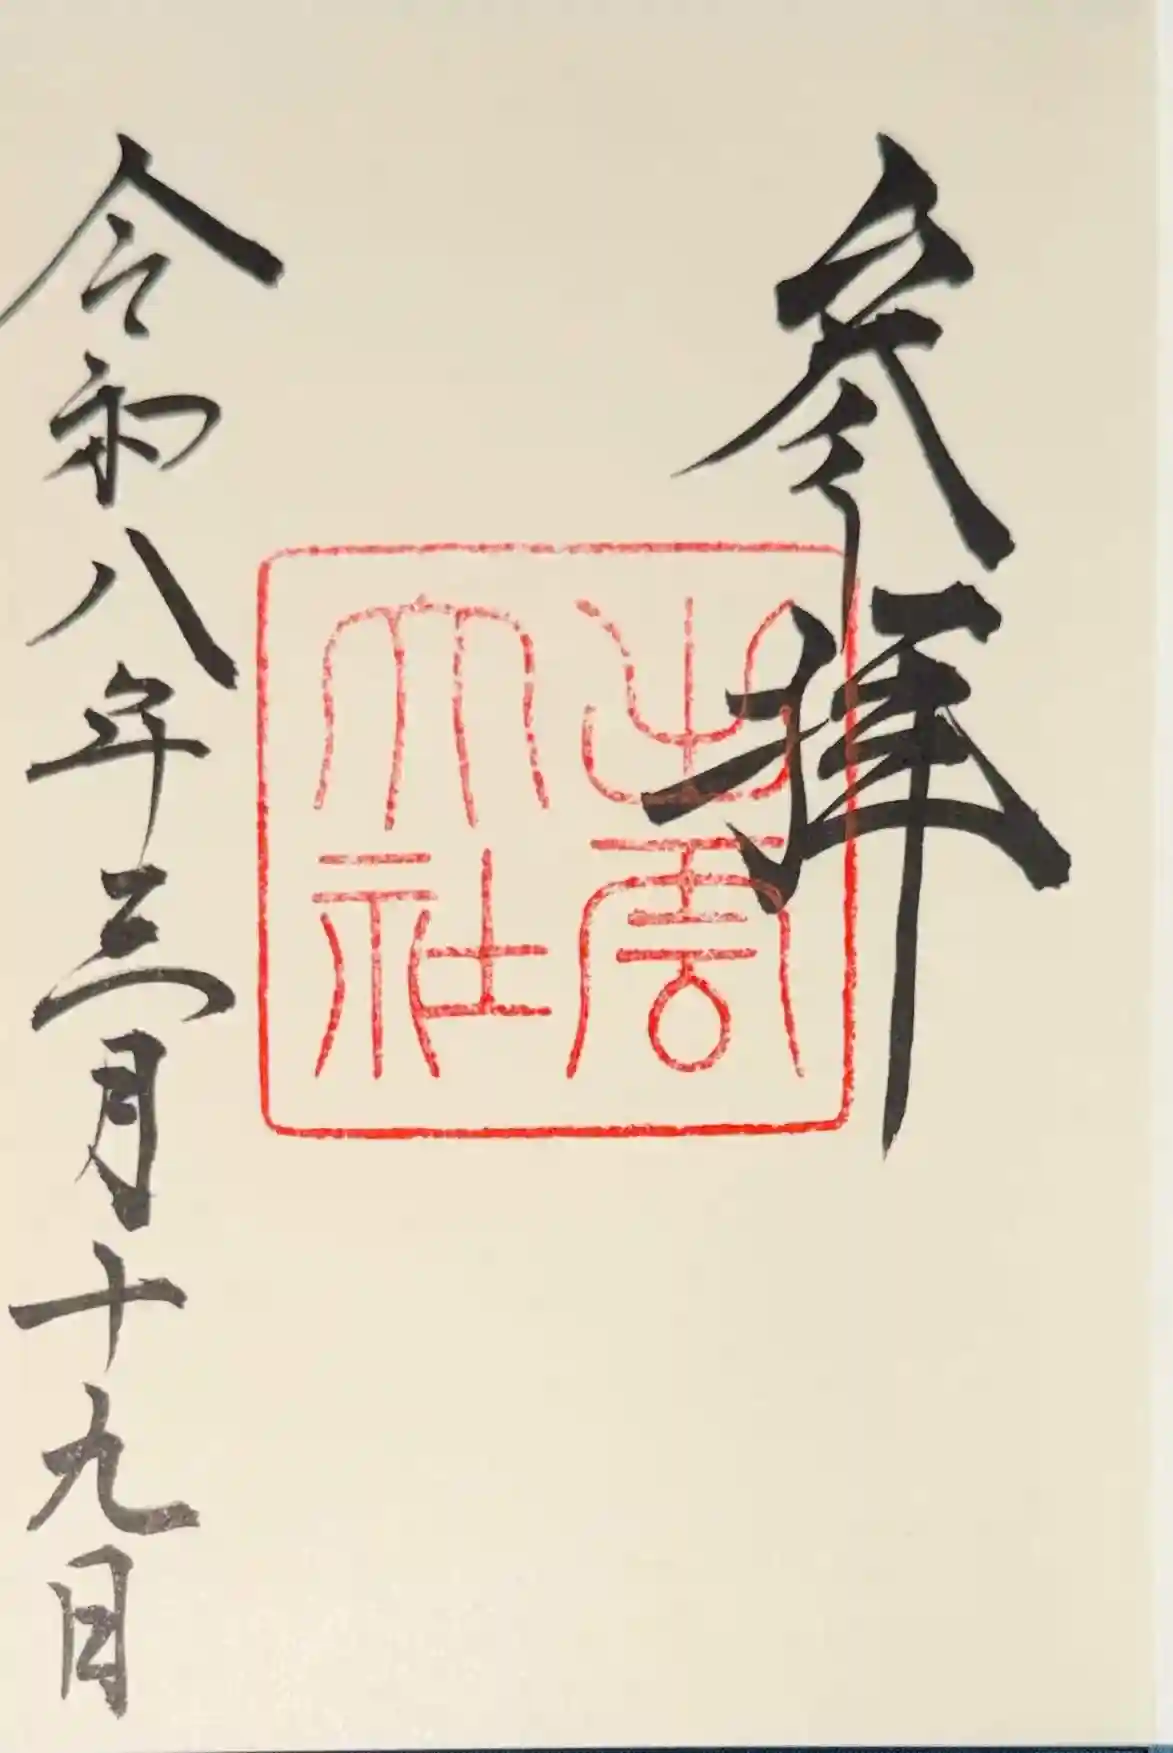 参拝
出雲大社
令和八年三月十九日